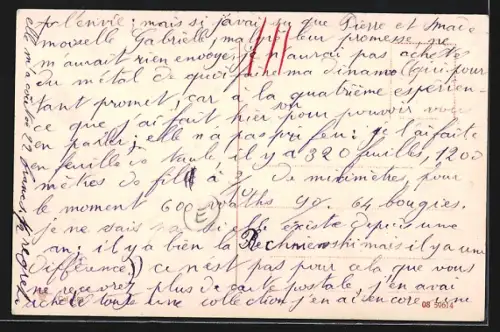 pas l'envie; mais si j'avais su que Pierre et Made
moiselle Gabrielle, malgré leur promesse, ne
m'aurait rien envoyer, je n'aurais pas acheté
du métal de quoi faire ma dinamo (qui pour
tant promet, car a la quatrième experien-
ce que j'ai fait hier pour pouvoir vous
en parler; elle n'a pas pris feu: je l'ai faite
en feuille de taule, il y a 320 feuilles, 1200
mètres de fil à de milimètres, pour
le moment 600 waths 90. 64 bougies.
je ne sais pas si elle existe depuis une
an; il y a bien la Rechniewski mais il y a une
différence,) ce n'est pas pour cela que vous
ne recevrez plus de carte postale, j'en avai
acheté toute une collection j'en ai encore une
elle m'a coûté 22 francs
E
08 59614